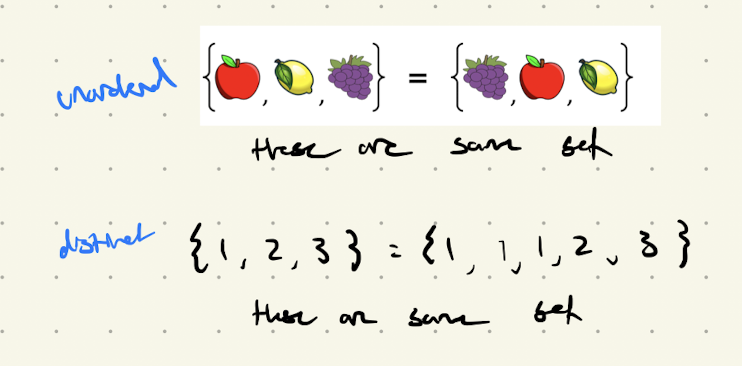 unordered { , , } = { , , }
these are same set
distinct {1, 2, 3} = {1, 1, 1, 2, 3}
these are same set